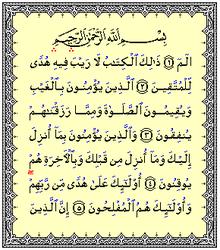 بِسْمِ ٱللَّهِ ٱلرَّحْمَٰنِ ٱلرَّحِيمِ
الٓمٓ ۝١ ذَٰلِكَ ٱلْكِتَٰبُ لَا رَيْبَ فِيهِ هُدًى
لِّلْمُتَّقِينَ ۝٢ ٱلَّذِينَ يُؤْمِنُونَ بِٱلْغَيْبِ
وَيُقِيمُونَ ٱلصَّلَوٰةَ وَمِمَّا رَزَقْنَٰهُمْ
يُنفِقُونَ ۝٣ وَٱلَّذِينَ يُؤْمِنُونَ بِمَآ أُنزِلَ
إِلَيْكَ وَمَآ أُنزِلَ مِن قَبْلِكَ وَبِٱلْأَخِرَةِ هُمْ
يُوقِنُونَ ۝٤ أُو۟لَٰٓئِكَ عَلَىٰ هُدًى مِّن رَّبِّهِمْ
وَأُو۟لَٰٓئِكَ هُمُ ٱلْمُفْلِحُونَ ۝٥ إِنَّ ٱلَّذِينَ